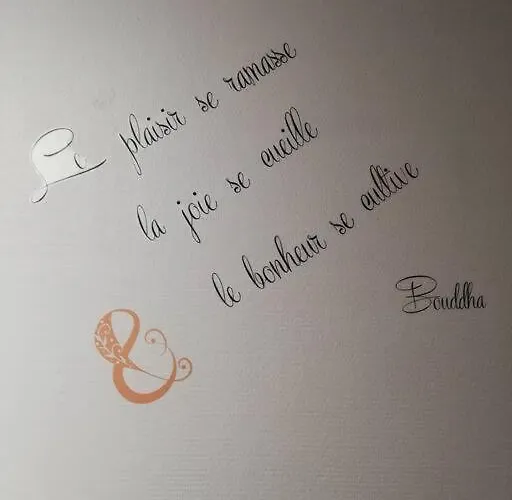 Le plaisir se ramasse
la joie se cueille
le bonheur se cultive
Bouddha
&